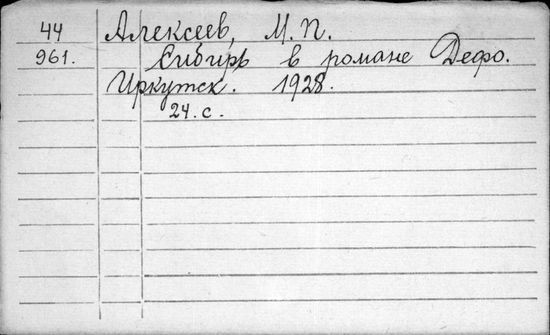 44 Алексеев, М. П.
961. Сибирь в романе Дефо.
Иркутск. 1928.
24. с.